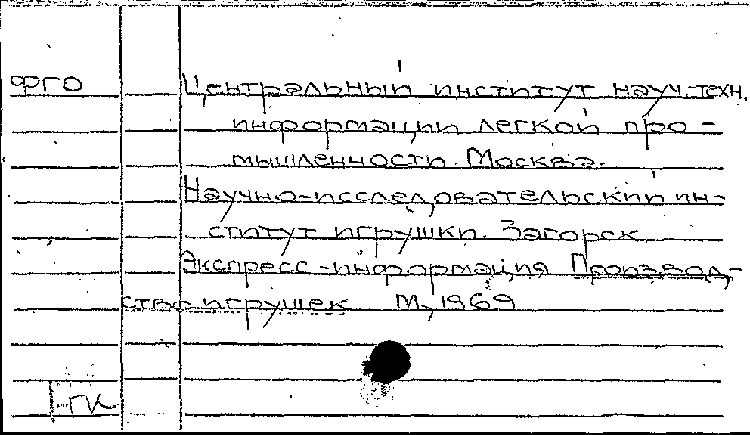 ФГО Центральный институт науч.-техн.
информации легкой про-
мышленности. Москва.
Научно-исследовательский ин-
ститут игрушки. Загорск
Экспресс-информация Производ-
ство игрушек М., 1969
ГК